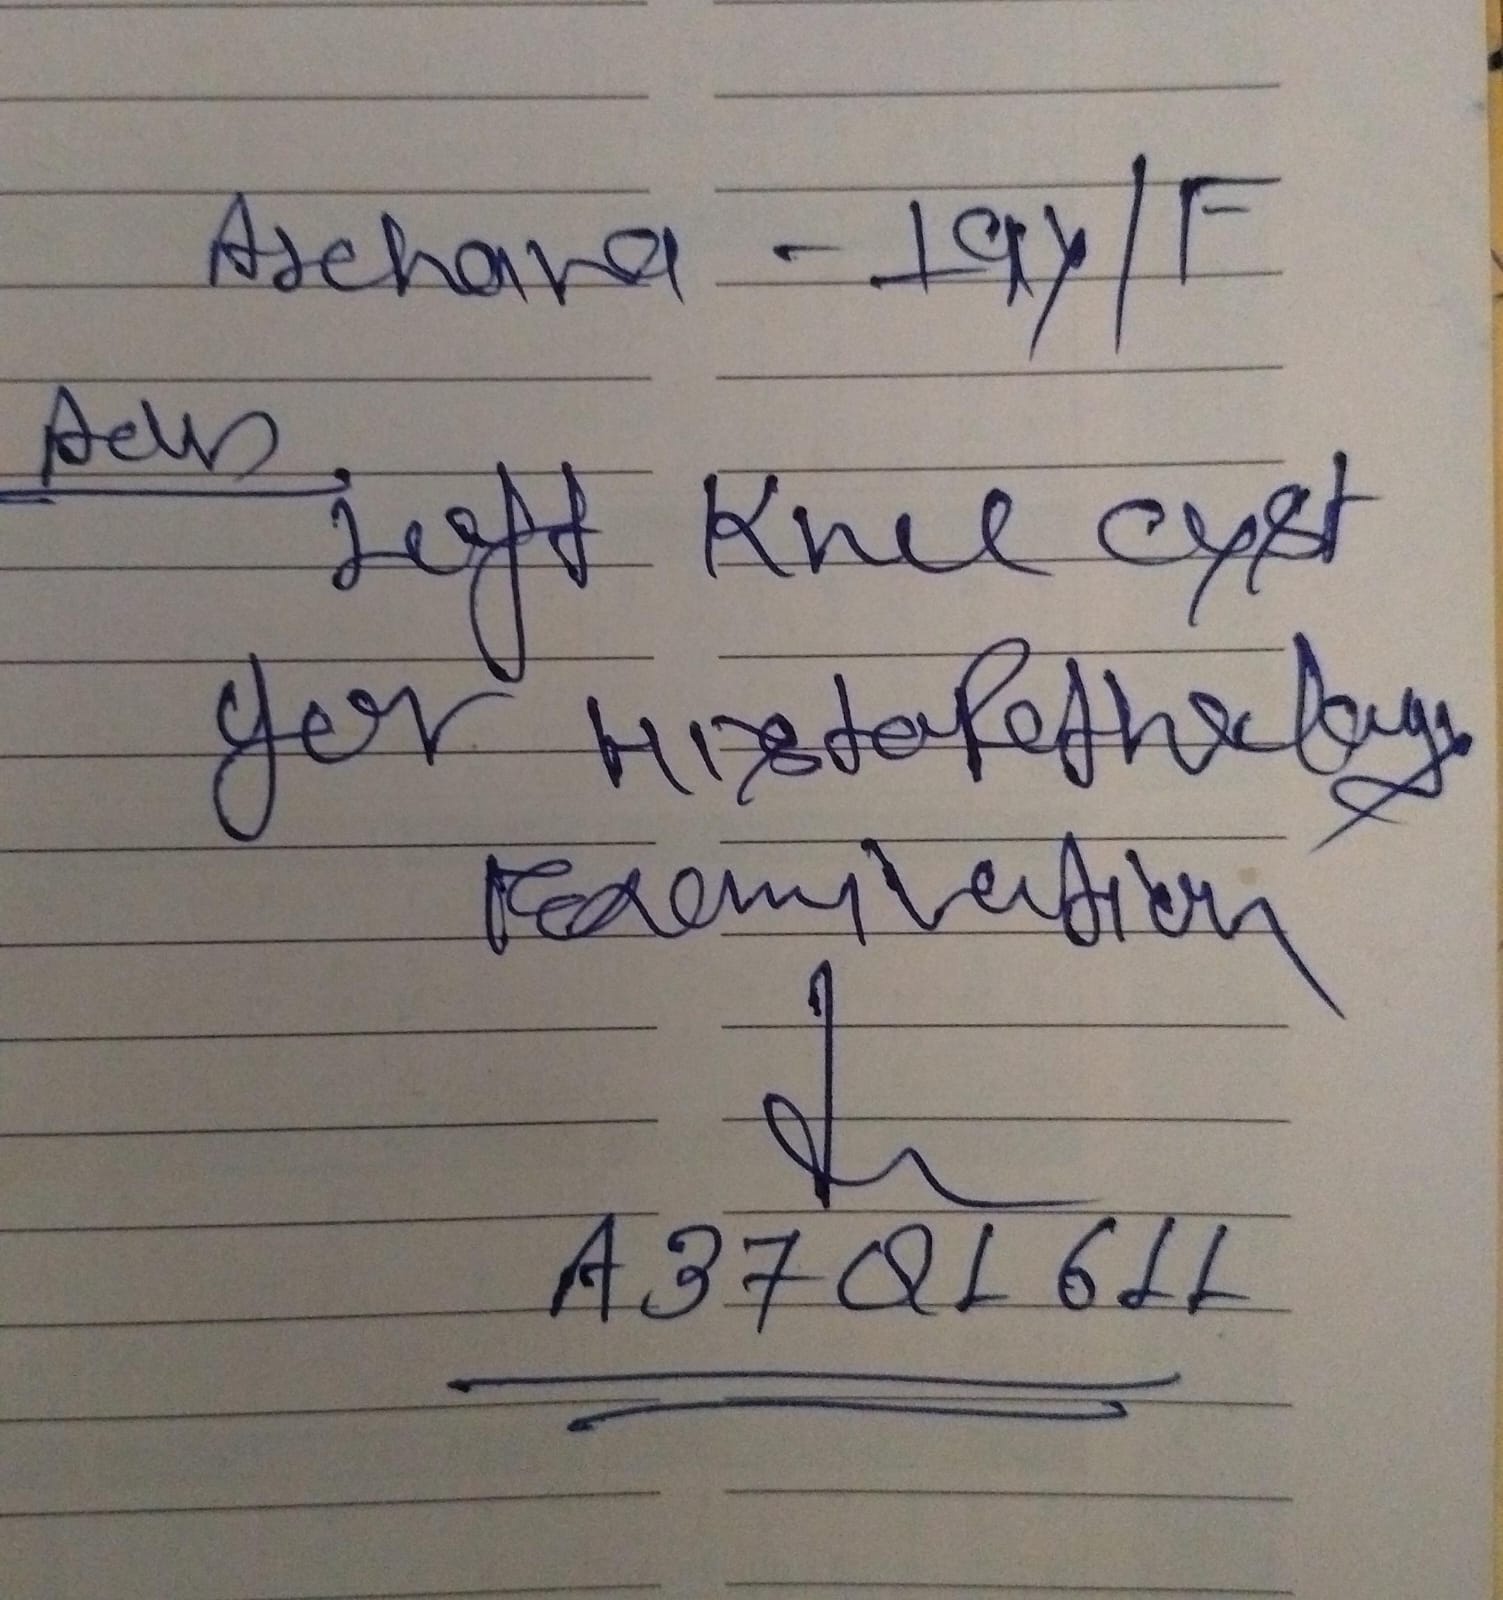 Archana - 19y/F
Adv
Left Knee cyst
for Histopathology
Examination
A37Q1611